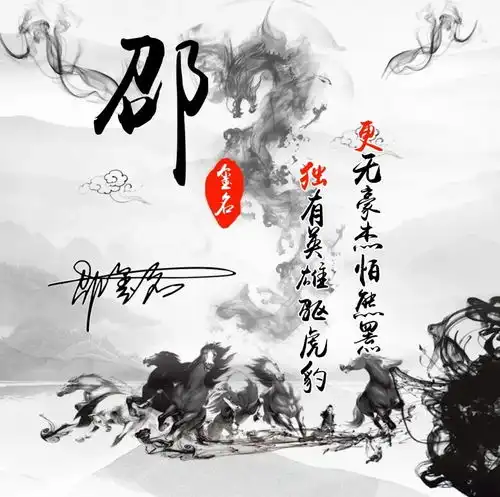 邵
金名
独有英雄驱虎豹
更无豪杰怕熊罴
邵金名